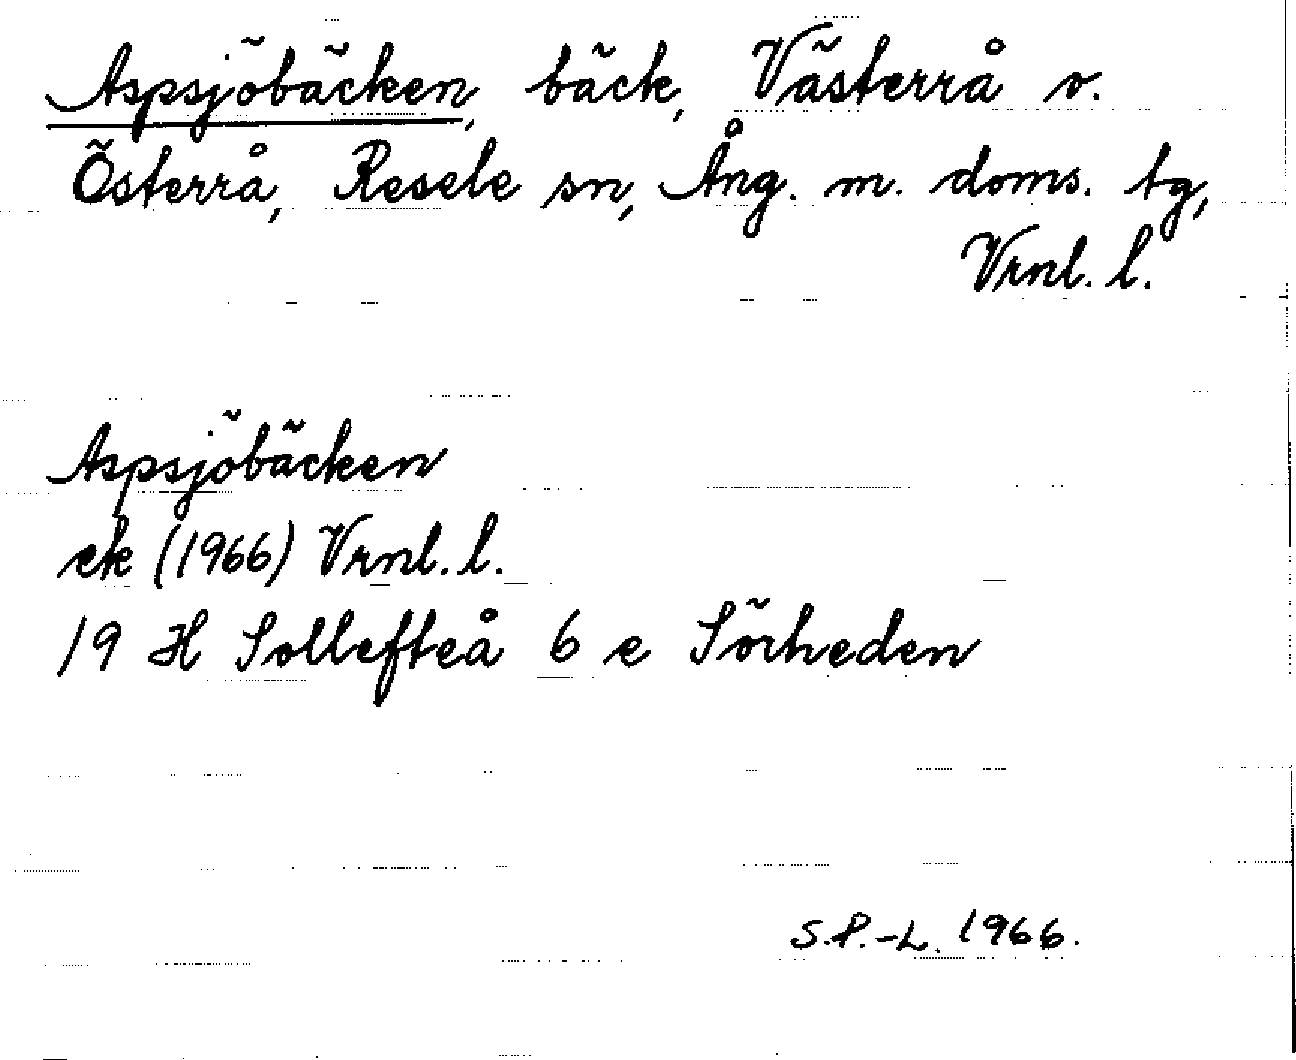 Aspsjöbäcken, bäck, Västerrå o.
Österrå, Resele sn, Ång. m. doms. tg,
Vrnl. l.
Aspsjöbäcken
ek (1966) Vrnl. l.
19 H Sollefteå 6 e Sörheden
S.P.-L. 1966.